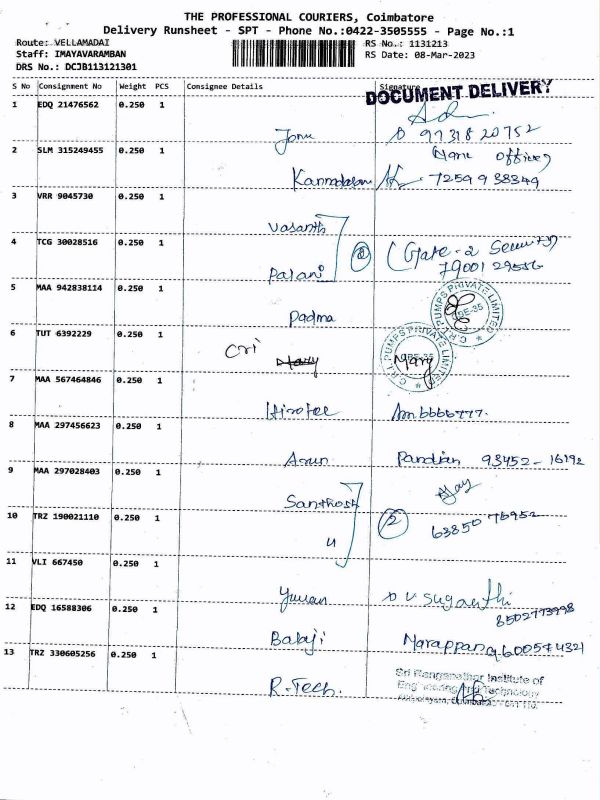 THE PROFESSIONAL COURIERS, Coimbatore
Delivery Runsheet - SPT - Phone No.:0422-3505555 - Page No.:1
Route: VELLAMADAI
RS No.: 1131213
Staff: IMAYAVARAMBAN
RS Date: 08-Mar-2023
DRS No.: DCJB113121301
S No Consignment No Weight PCS Consignee Details Signature
DOCUMENT DELIVERY
1 EDQ 21476562 0.250 1
9731820752
2 SLM 315249455 0.250 1
Kannadasan 7259938349
3 VRR 9045730 0.250 1
Vasanth
4 TCG 30028516 0.250 1
2 (Gate-2 Security)
Palani
5 MAA 942838114 0.250 1
Padma
C.R.I. PUMPS PRIVATE LIMITED
6 TUT 6392229 0.250 1
Cri Mary Mary
C.R.I. PUMPS PRIVATE LIMITED
7 MAA 567464846 0.250 1
8 MAA 297456623 0.250 1
Arun Pandian 93452-16192
9 MAA 297028403 0.250 1
Santhosh
10 TRZ 190021110 0.250 1
2
63850 76952
11 VLI 667450 0.250 1
Suganthi
8502773998
12 EDQ 16588306 0.250 1
Balaji
13 TRZ 330605256 0.250 1
R-Tech.
Sri Ranganathar Institute of
Engineering and Technology